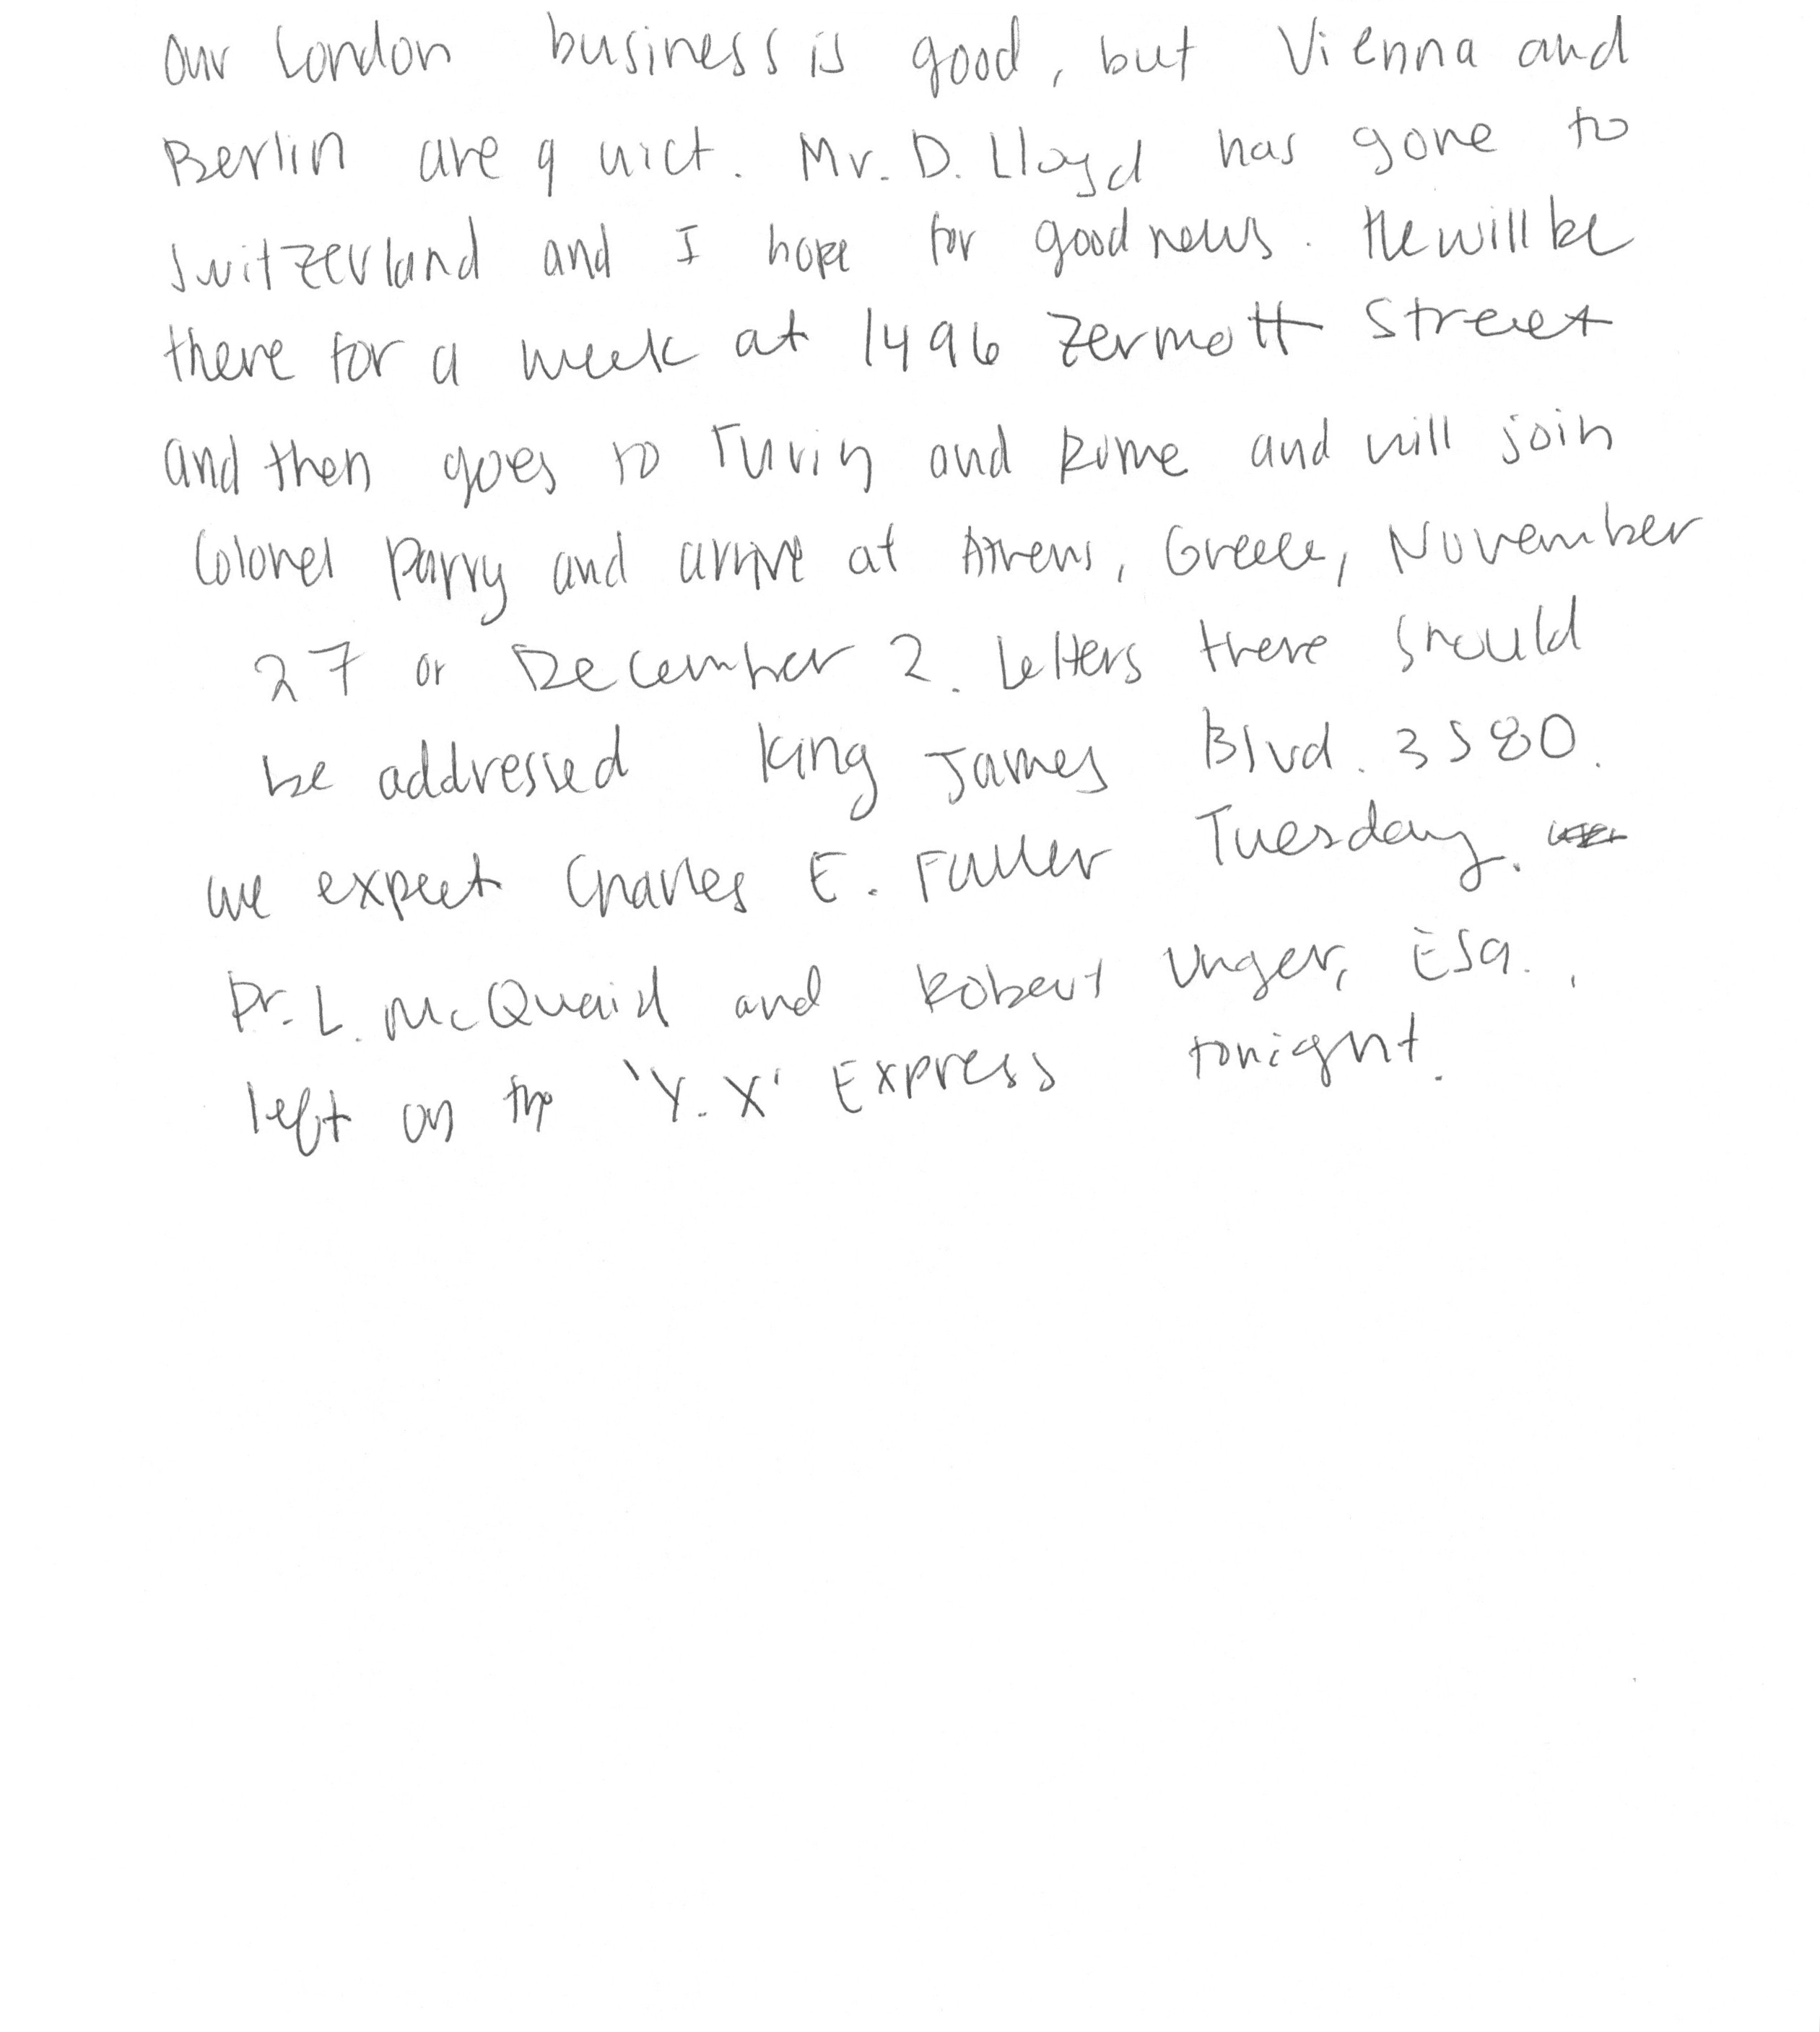 Our London business is good, but Vienna and
Berlin are quiet. Mr. D. Lloyd has gone to
Switzerland and I hope for good news. He will be
there for a week at 1496 Zermott Street
and then goes to Turin and Rome and will join
Colonel Parry and arrive at Athens, Greece, November
27 or December 2. Letters there should
be addressed King James Blvd. 3580.
We expect Charles E. Fuller Tuesday.
Dr. L. McQuaid and Robert Unger, Esq.,
left on the 'Y.X' Express tonight.